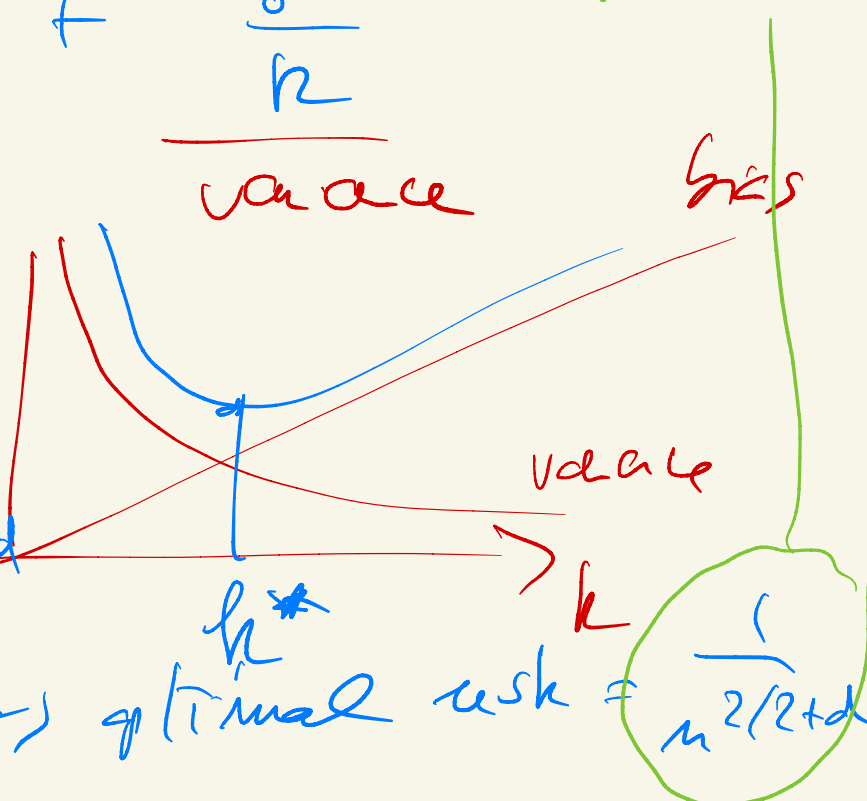 + σ / k
variance
bias
variance
k
k*
→ optimal risk = 1 / n^2/2+d